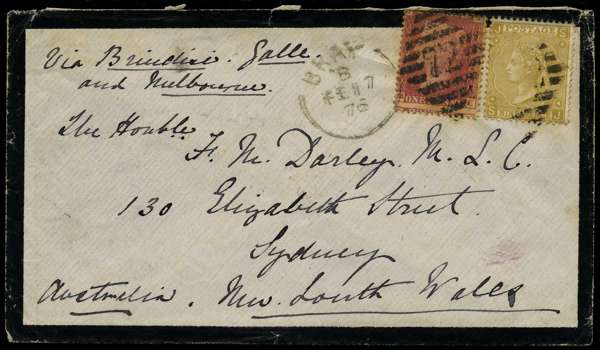 Via Brindisi. Galle.
and Melbourne.
The Honble.
F. M. Darley. M. L. C.
130 Elizabeth Street.
Sydney
Australia. New South Wales
BRAY
B
FE 17
76
POSTAGE
ONE